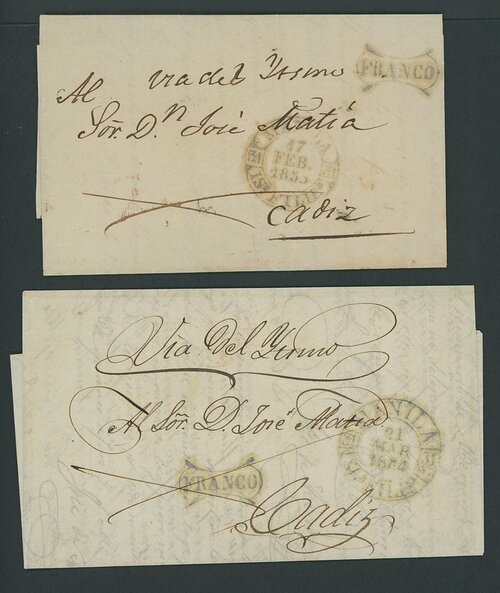 via del Ysmo
FRANCO
Al
Sor. Dn. José Matía
17
FEB.
1853
Cadiz
Via Del Ysmo
Al Sor. D. José Matia
MANILA
21
MAR
1854
FRANCO
Cadiz